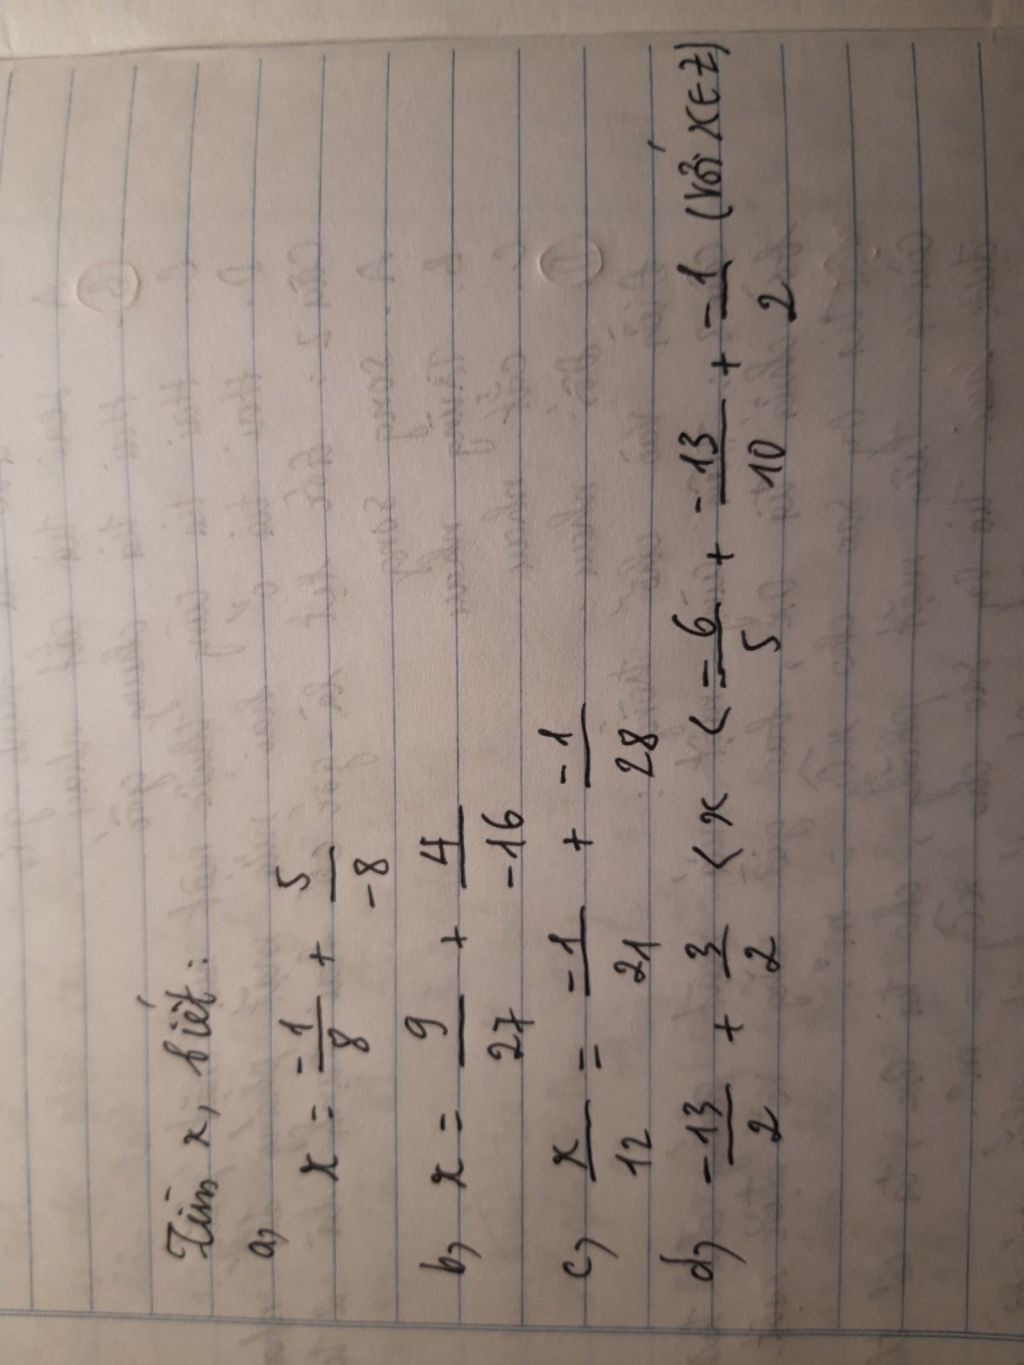 Tìm x, biết:
a, x = -1/8 + 5/-8
b, x = 9/27 + 4/-16
c, x/12 = -1/21 + -1/28
d, -13/2 + 3/2 < x < -6/5 + -13/10 + -1/2 (với x ∈ Z)